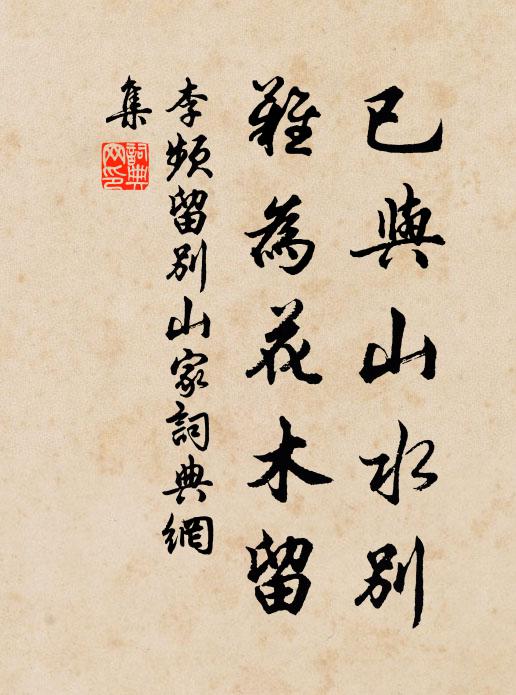 已與山水別
難為花木留
李頻留別山家詞典網
集
詞典
网印